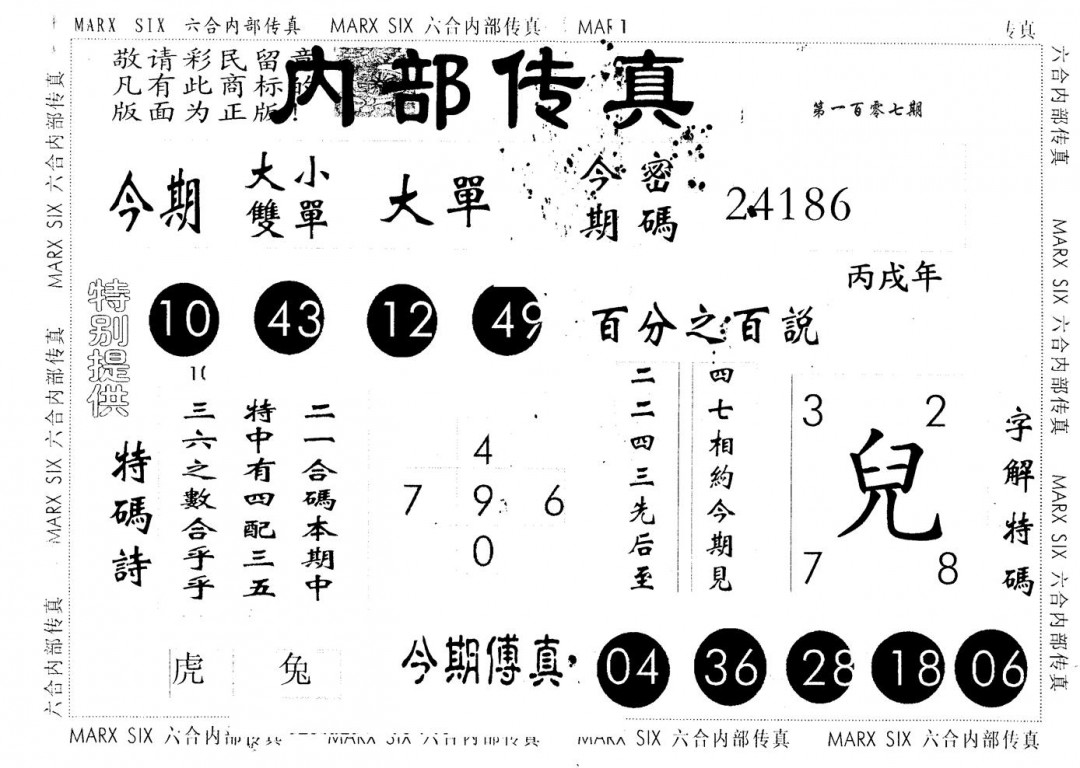 MARX SIX 六合内部传真 MARX SIX 六合内部传真 MAR 1 传真
敬请彩民留意
凡有此商标的
版面为正版!
内部传真
第一百零七期
今期
大小
雙單
大單
今期
密碼
24186
丙戌年
特别提供
10 43 12 49
百分之百説
特碼詩
二一合碼本期中
特中有四配三五
三六之數合乎乎
4
7 9 6
0
四七相約今期見
二二四三先后至
3 2
兒
7 8
字解特碼
虎 兔
今期傅真
04 36 28 18 06
MARX SIX 六合内部传真 MARX SIX 六合内部传真 MARX SIX 六合内部传真
MARX SIX 六合内部传真 MARX SIX 六合内部传真 MARX SIX 六合内部传真 MARX SIX 六合内部传真
六合内部传真 MARX SIX 六合内部传真 MARX SIX 六合内部传真